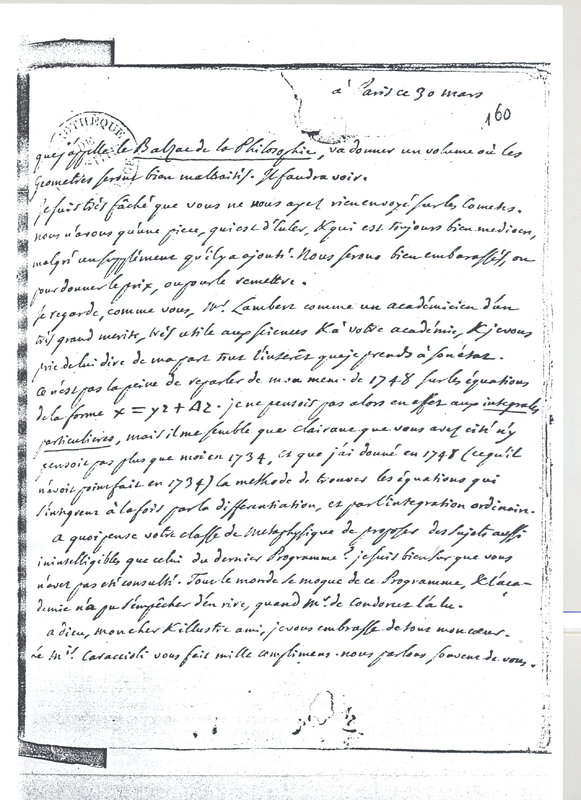 à Paris ce 30 mars
160
OTHEQUE
que j'appelle le Balzac de la Philosophie, va donner un volume où les
Geometres seront bien maltraités. Il faudra voir.
je suis très fâché que vous ne nous ayez rien envoyé sur les Cometes.
nous n'avons qu'une piece, qui est d'Euler, & qui est toujours bien mediocre,
malgré un supplément qu'il y a ajouté. Nous serons bien embarassés, ou
pour donner le prix, ou pour le remettre.
Je regarde, comme vous, Mr. Lambert comme un académicien d'un
très grand merite, très utile aux sciences & à votre académie, & je vous
prie de lui dire de ma part tout l'interêt que je prends à son état.
Ce n'est pas la peine de reparler de mon mem. de 1748 sur les équations
de la forme x = yz + Δz. je ne pensois pas alors en effet aux integrales
particulieres, mais il me semble que Clairaut que vous avez cité n'y
pensoit pas plus que moi en 1734, et que j'ai donné en 1748 (ce qu'il
n'avoit point fait en 1734) la methode de trouver les équations qui
s'integrent à la fois par la differentiation, et par l'integration ordinaire.
A quoi pense votre classe de Metaphysique de proposer des sujets aussi
inintelligibles que celui du dernier Programme? je suis bien sur que vous
n'avez pas été consulté. Tout le monde se moque de ce Programme, & l'aca-
demie n'a pu s'empêcher d'en rire, quand Mr. de Condorcet l'a lu.
adieu, mon cher & illustre ami, je vous embrasse de tout mon cœur.
Le Mis. Caraccioli vous fait mille complimens. nous parlons souvent de vous.